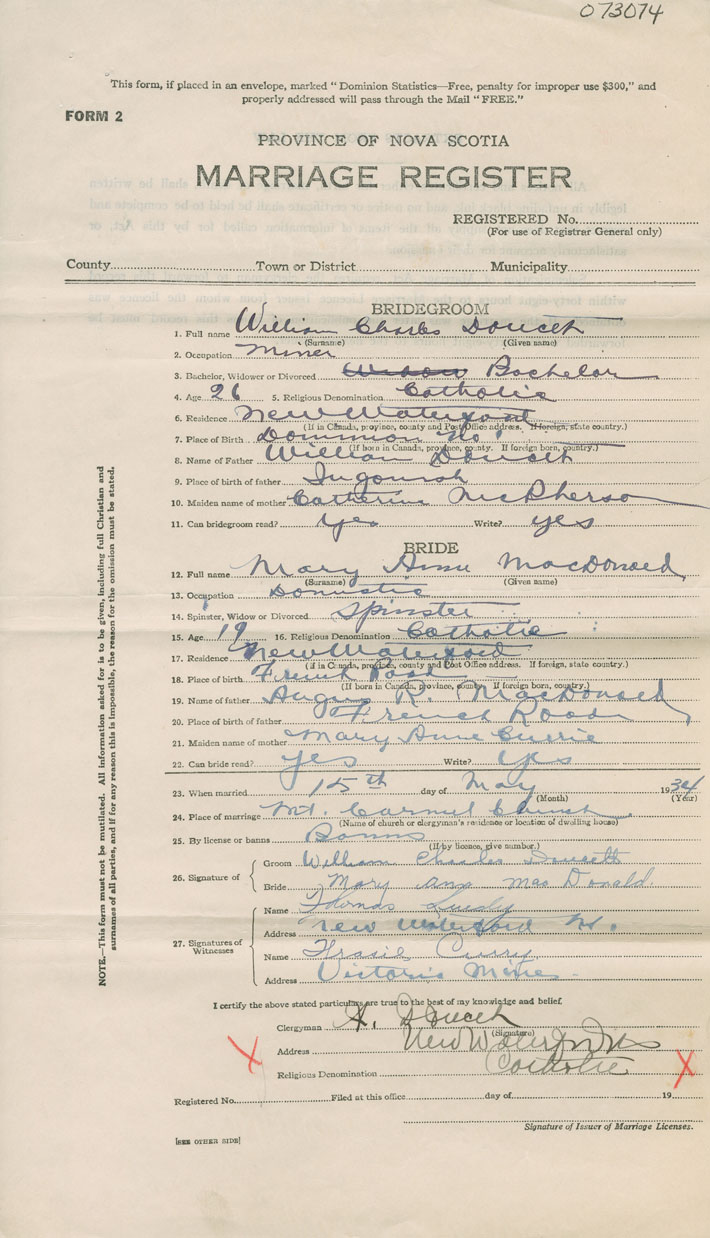 073074
This form, if placed in an envelope, marked "Dominion Statistics—Free, penalty for improper use $300," and
properly addressed will pass through the Mail "FREE."
FORM 2
PROVINCE OF NOVA SCOTIA
MARRIAGE REGISTER
REGISTERED No.
(For use of Registrar General only)
County Town or District Municipality
BRIDEGROOM
1. Full name William Charles Doucett
(Surname) (Given name)
2. Occupation Miner
3. Bachelor, Widower or Divorced Bachelor
4. Age 26 5. Religious Denomination Catholic
6. Residence New Waterford
(If in Canada, province, county and Post Office address. If foreign, state country.)
7. Place of Birth Dominion No 1
(If born in Canada, province, county. If foreign born, country.)
8. Name of Father William Doucett
9. Place of birth of father Ingonish
10. Maiden name of mother Catherine McPherson
11. Can bridegroom read? Yes Write? yes
BRIDE
12. Full name Mary Anne MacDonald
(Surname) (Given name)
13. Occupation Domestic
14. Spinster, Widow or Divorced Spinster
15. Age 19 16. Religious Denomination Catholic
17. Residence New Waterford
(if in Canada, province, county and Post Office address. If foreign, state country.)
18. Place of birth French Road
(If born in Canada, province, county. If foreign born, country.)
19. Name of father Angus R. MacDonald
20. Place of birth of father French Road
21. Maiden name of mother Mary Anne Currie
22. Can bride read? yes Write? yes
23. When married 15th day of May 1934
(Month) (Year)
24. Place of marriage Mt. Carmel Church
(Name of church or clergyman's residence or location of dwelling house)
25. By license or banns Banns
(If by licence, give number.)
26. Signature of
Groom William Charles Doucett
Bride Mary ann mac Donald
27. Signatures of Witnesses
Name Thomas
Address New Waterford
Name Curry
Address Victoria Mines
I certify the above stated particulars are true to the best of my knowledge and belief.
Clergyman Doucet
(Signature)
Address New Waterford NS
Religious Denomination Catholic
X X
Registered No. Filed at this office day of 19
Signature of Issuer of Marriage Licenses.
[SEE OTHER SIDE]
NOTE.—This form must not be mutilated. All information asked for is to be given, including full Christian and
surnames of all parties, and if for any reason this is impossible, the reason for the omission must be stated.